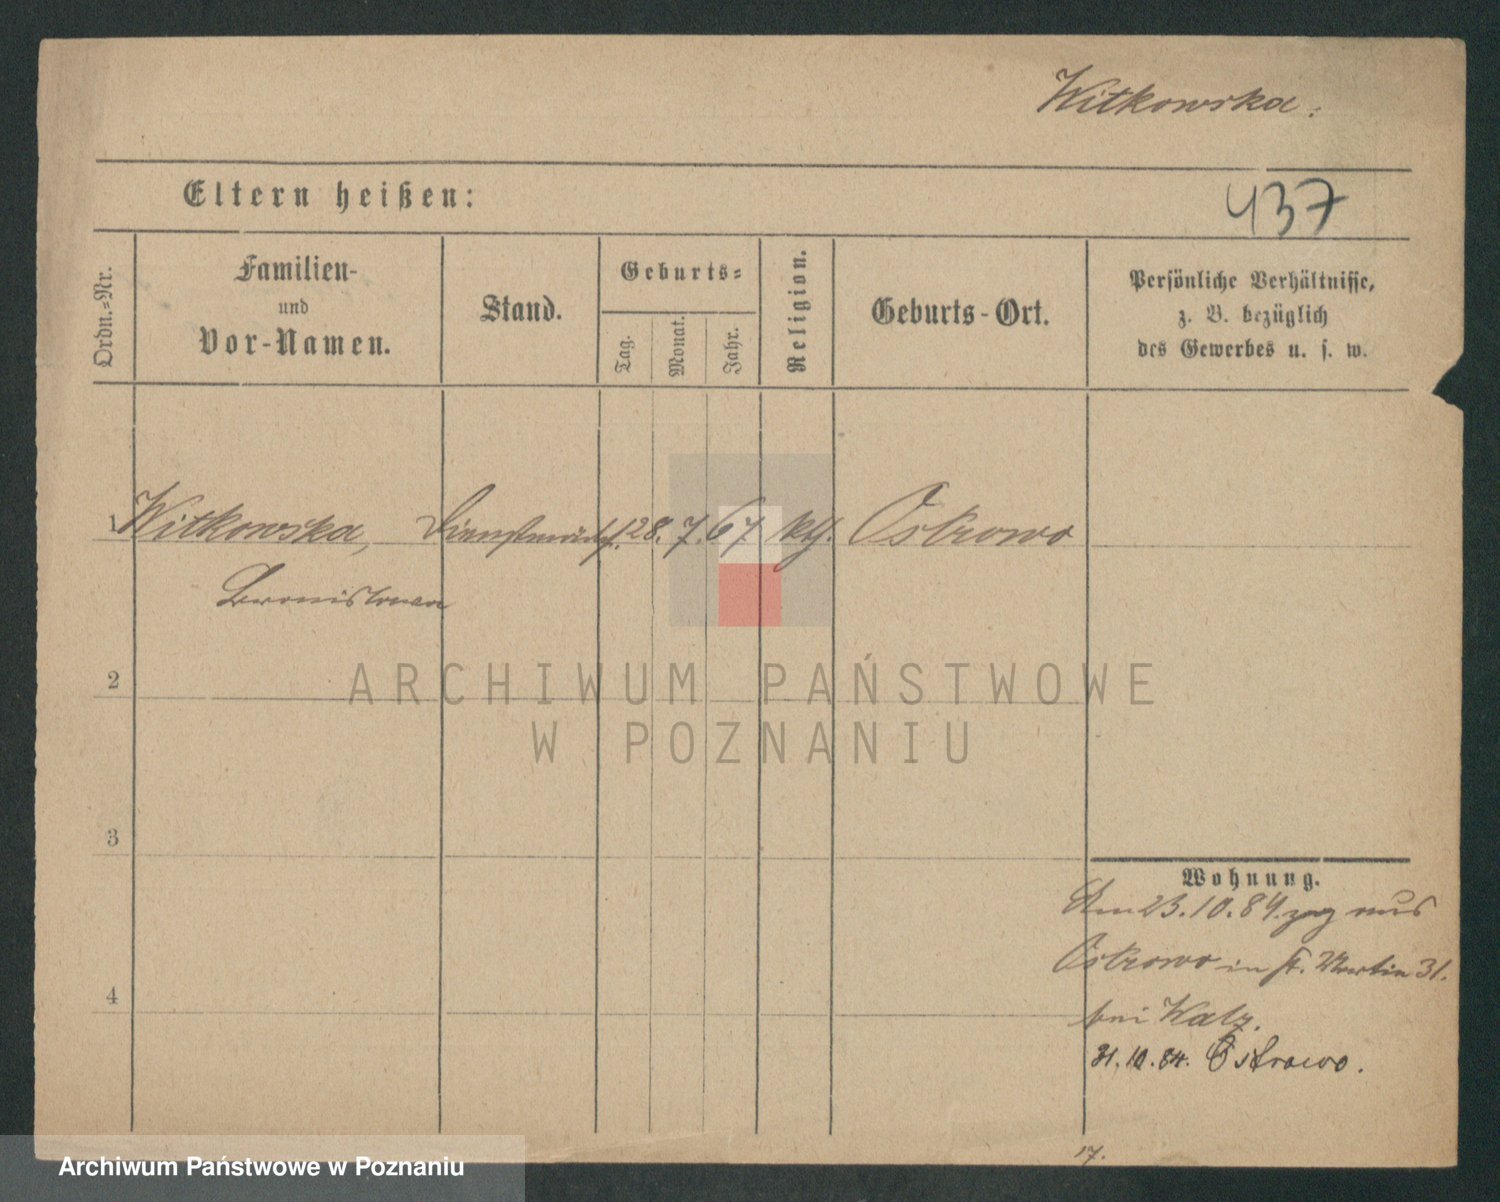 Witkowska.
Eltern heißen:
437
Ordn.-Nr.
Familien-
und
Vor-Namen.
Stand.
Geburts-
Tag.
Monat.
Jahr.
Religion.
Geburts-Ort.
Persönliche Verhältnisse,
z. B. bezüglich
des Gewerbes u. s. w.
1 Witkowska, Dienstmädch. 28. 7. 67 kth. Ostrowo
Bronislawa
2
ARCHIWUM PAŃSTWOWE
W POZNANIU
3
Wohnung.
Am 23.10.84. zog aus
Ostrowo in St. Martin 31.
4
bei Walz.
31.10.84. Ostrowo.
17.
Archiwum Państwowe w Poznaniu